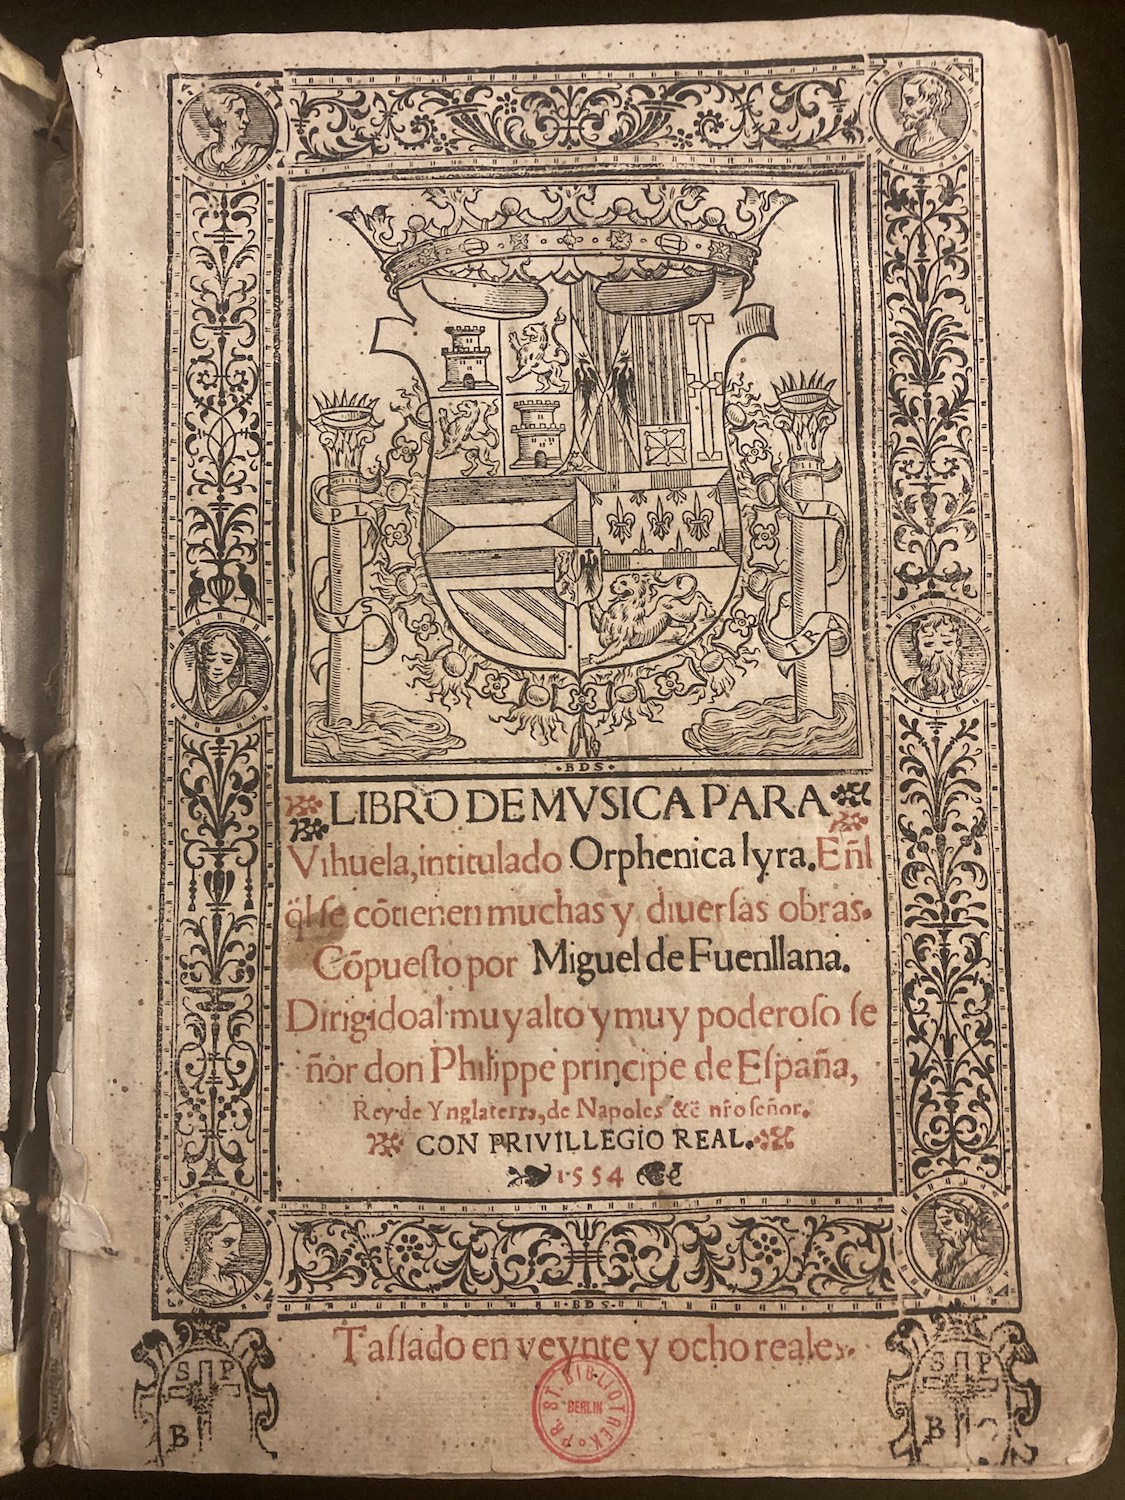 PL
VS
VL
TRA
·BDS·
LIBRO DE MVSICA PARA
Vihuela, intitulado Orphenica lyra. Eñl
q̃l se cõtienen muchas y diuersas obras.
Cõpuesto por Miguel de Fuenllana.
Dirigido al muy alto y muy poderoso se
ñor don Philippe principe de España,
Rey de Ynglaterra, de Napoles &c̃ nr̃o señor.
CON PRIVILLEGIO REAL.
1554
·BDS·
Tassado en veynte y ocho reales.
S P
B
PR. ST. BIBLIOTHEK
BERLIN
S P
B